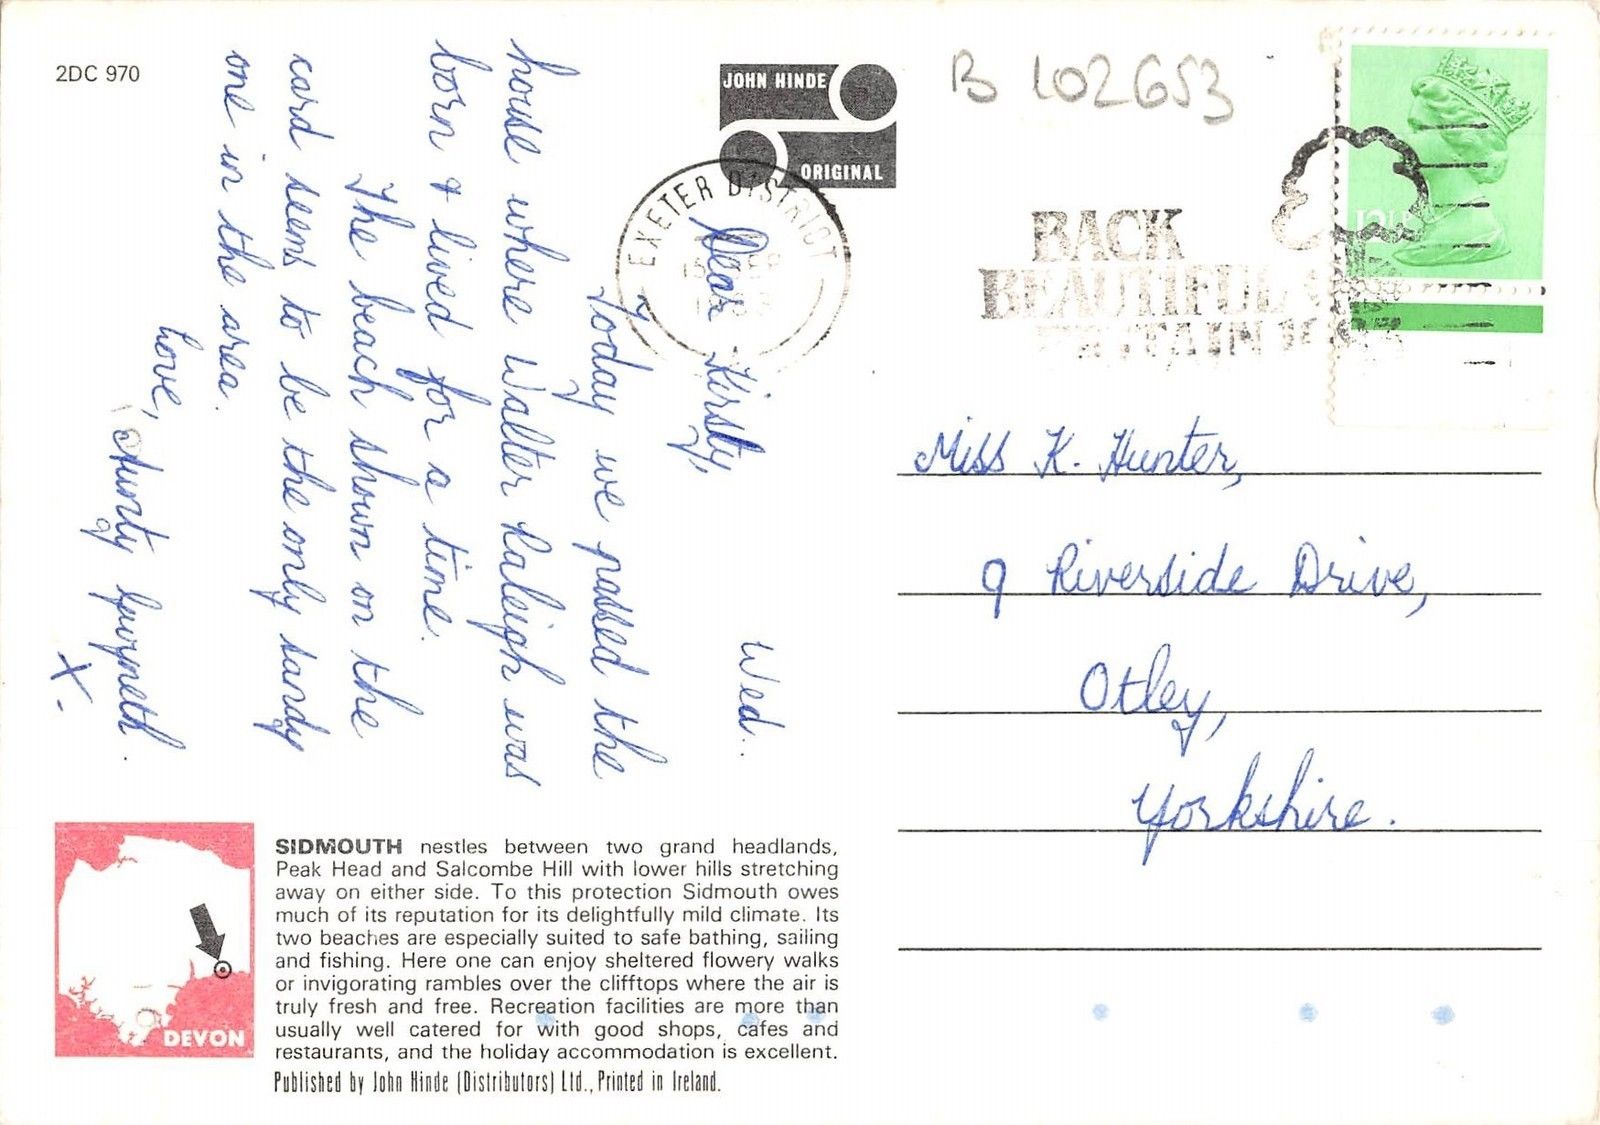 2DC 970
JOHN HINDE
ORIGINAL
B 102653
EXETER DISTRICT
BACK
BEAUTIFUL
BRITAIN
12½P
Wed..
Dear Kirsty,
Today we passed the
house where Walter Raleigh was
born & lived for a time.
The beach shown on the
card seems to be the only sandy
one in the area.
Love,
Aunty Gwyneth.
X.
Miss K. Hunter,
9 Riverside Drive,
Otley,
Yorkshire.
DEVON
SIDMOUTH nestles between two grand headlands,
Peak Head and Salcombe Hill with lower hills stretching
away on either side. To this protection Sidmouth owes
much of its reputation for its delightfully mild climate. Its
two beaches are especially suited to safe bathing, sailing
and fishing. Here one can enjoy sheltered flowery walks
or invigorating rambles over the clifftops where the air is
truly fresh and free. Recreation facilities are more than
usually well catered for with good shops, cafes and
restaurants, and the holiday accommodation is excellent.
Published by John Hinde (Distributors) Ltd., Printed in Ireland.